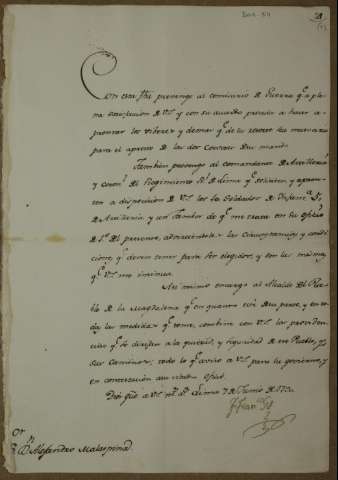 Con esta fha prevengo al comisario de Guerra qe a ple
na satisfaccion de VS. y con su acuerdo proceda a hacer a
prontar los viveres y demas qe de su
para el apresto de las dos Corvetas de su mando.
Tambien prevengo al comandante de Artilleria
y Coronl del Regimiento Rl de Lima qe
a disposicion de VS. los Soldados de Infanta
de Artilleria y un Tambor de qe me trata en su oficio
de del presente, advirtiendoles las circunstancias y condi
ciones qe deven tener para ser elegidos, y son las mismas
qe VS. me insinua.
Asi mismo encargo al Alcalde del Pue
blo de la Magdalena qe en quanto este de su parte, y en to
das las medidas qe tome, combine con VS. las providen
cias qe se dirijan a la quietud, y seguridad de ese Pueblo, y
sus Caminos; todo lo qe aviso a VS. para su govierno, y
en contextacion a su citado oficio.
Dios gue a VS. ms as Lima 7 de Junio de 1790.
Sor Dn Alejandro Malaspina.